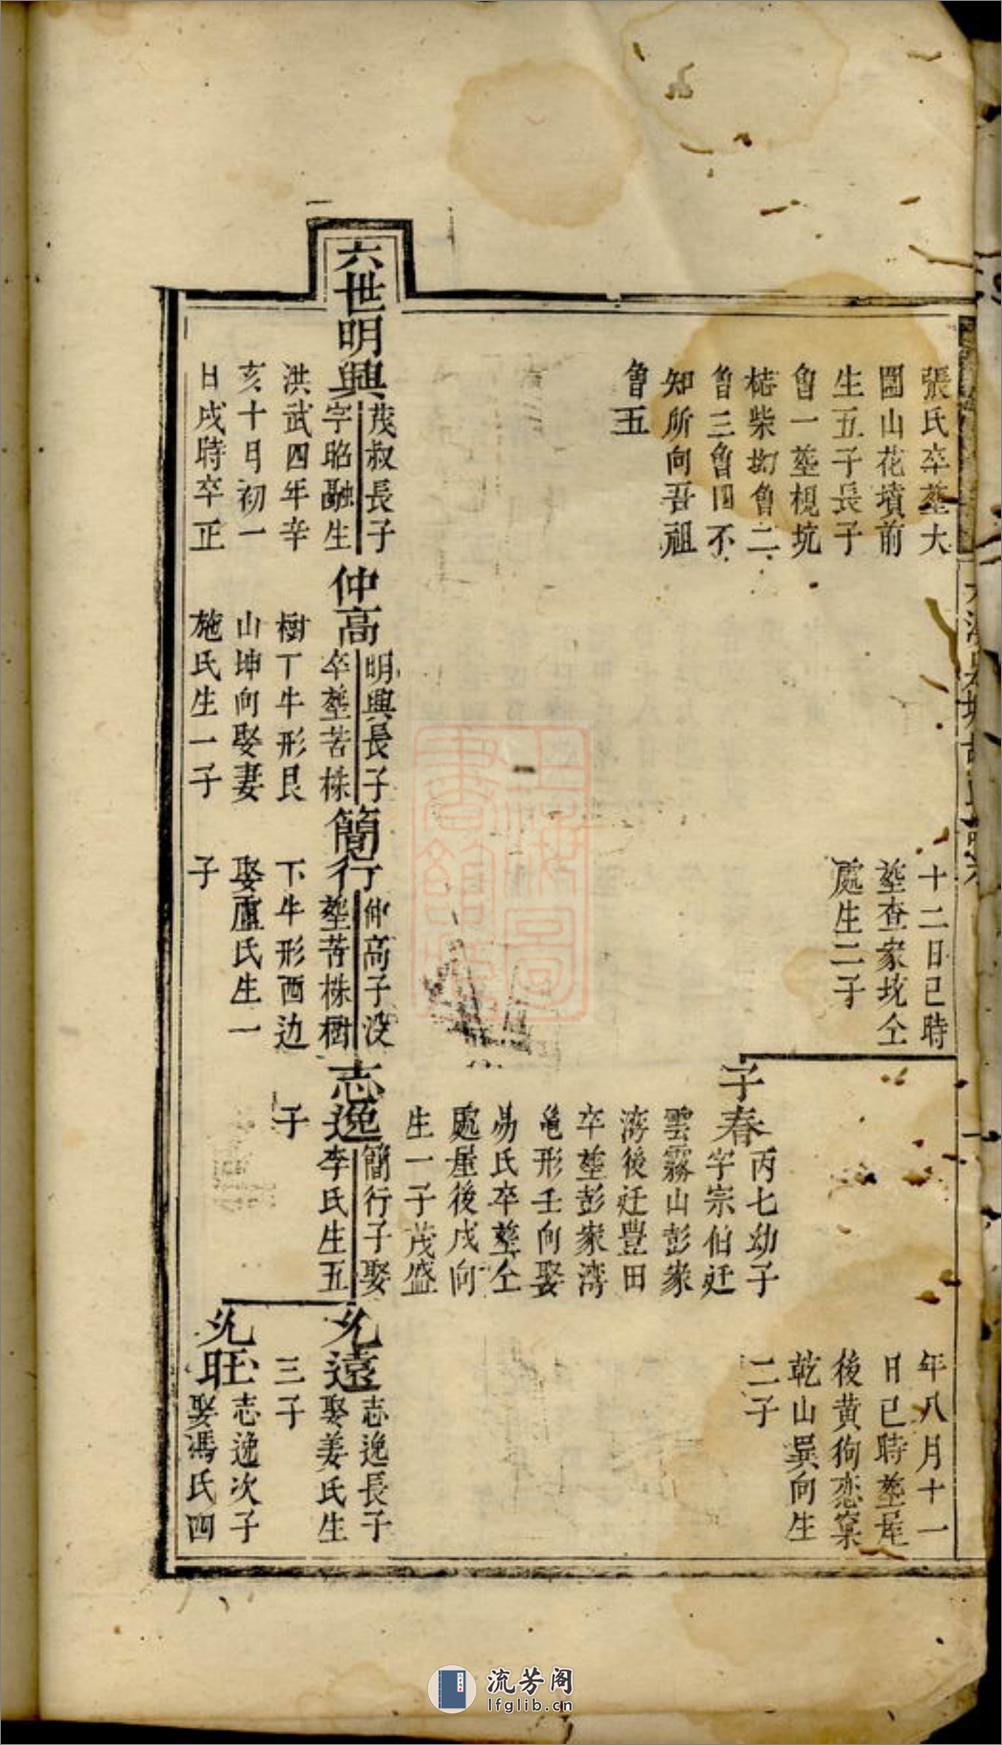 張氏卒塟大
圖山花墳前
生五子長子
魯一塟棍坑
樁柴坳魯二
魯三魯四不
知所向吾祖
魯五
十二日已時
塟查家坑仝
處生二子
年八月十一
日已時塟屋
後黄狗恋窠
乾山巽向生
二子
子春
丙七幼子
字宗伯迁
雲霧山彭家
湾後迁豊田
卒塟彭家湾
亀形壬向娶
易氏卒塟仝
處屋後戌向
生一子茂盛
六世
明興
茂叔長子
字昭融生
洪武四年辛
亥十月初一
日戌時卒正
仲高
明興長子
卒塟苦株
樹丅牛形艮
山坤向娶妻
施氏生一子
簡行
仲高子没
塟苦株樹
下牛形酉边
娶盧氏生一
子
志逸
簡行子娶
李氏生五
子
允遠
志逸長子
娶姜氏生
三子
允旺
志逸次子
娶馮氏四
流芳阁
lfglib.cn